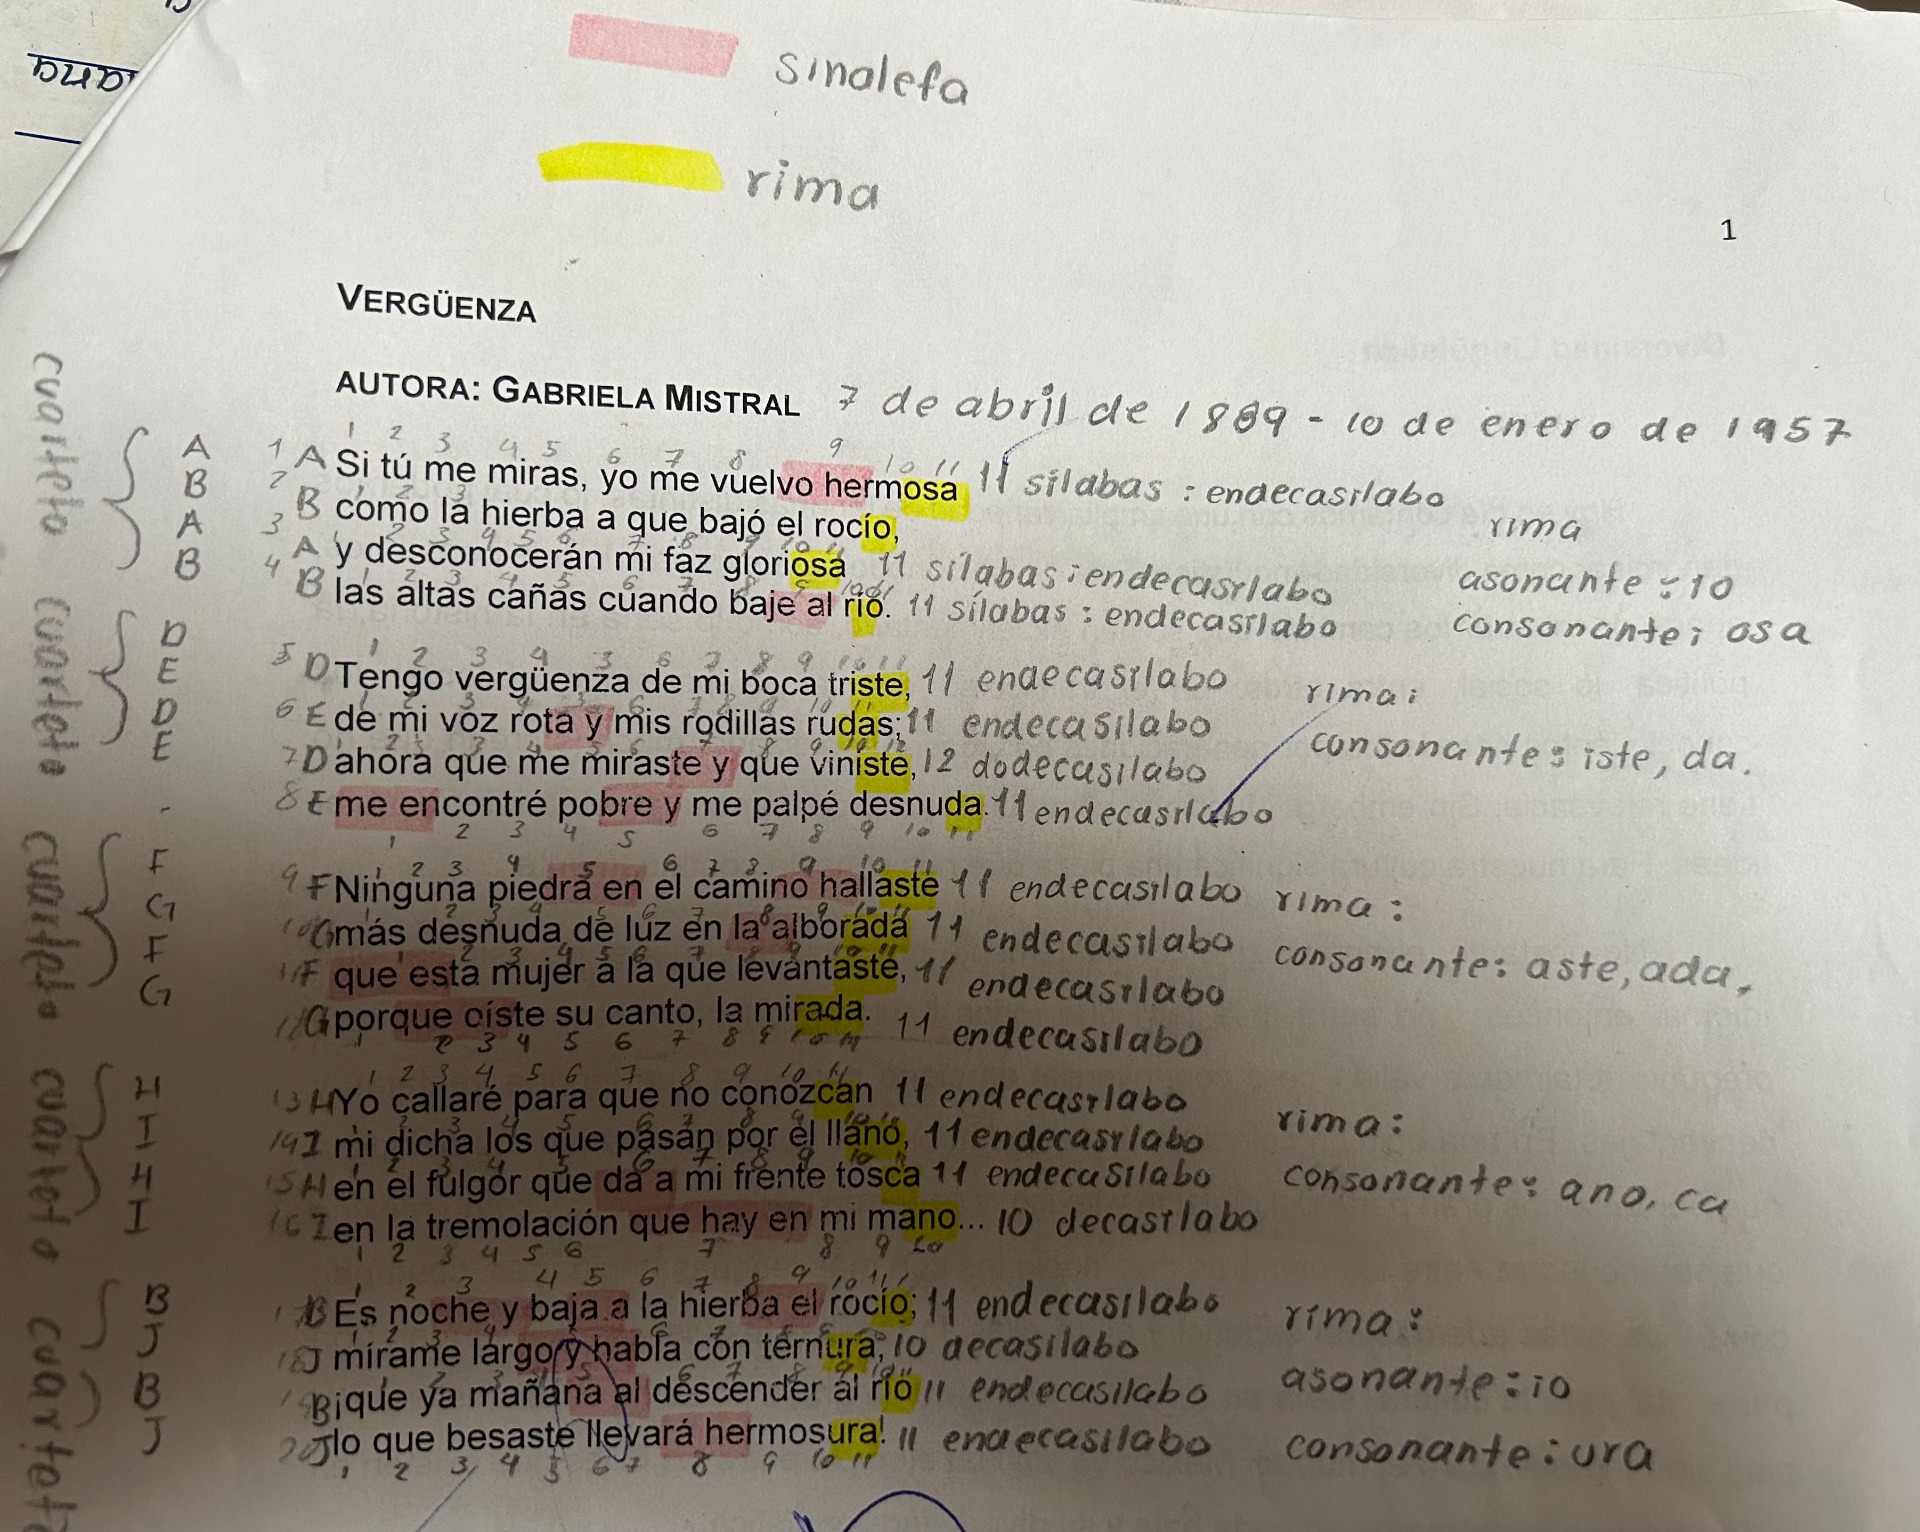 sinalefa
rima
1
VERGÜENZA
AUTORA: GABRIELA MISTRAL 7 de abril de 1889 - 10 de enero de 1957
A 1 A Si tú me miras, yo me vuelvo hermosa 11 sílabas : endecasílabo
B 2 B como la hierba a que bajó el rocío,
rima
A 3 A y desconocerán mi faz gloriosa 11 sílabas : endecasílabo
asonante : io
B 4 B las altas cañas cuando baje al río. 11 sílabas : endecasílabo
consonante : osa
cuarteto
D 5 D Tengo vergüenza de mi boca triste, 11 endecasílabo
rima :
E 6 E de mi voz rota y mis rodillas rudas; 11 endecasílabo
D 7 D ahora que me miraste y que viniste, 12 dodecasílabo
consonante : iste, da.
E 8 E me encontré pobre y me palpé desnuda. 11 endecasílabo
cuarteto
F 9 F Ninguna piedra en el camino hallaste 11 endecasílabo
rima :
G 10 G más desnuda de luz en la alborada 11 endecasílabo
F 11 F que esta mujer a la que levantaste, 11 endecasílabo
consonante : aste, ada,
G 12 G porque oíste su canto, la mirada. 11 endecasílabo
cuarteto
H 13 H Yo callaré para que no conozcan 11 endecasílabo
rima :
I 14 I mi dicha los que pasan por el llano, 11 endecasílabo
H 15 H en el fulgor que da a mi frente tosca 11 endecasílabo
consonante : ano, ca
I 16 I en la tremolación que hay en mi mano... 10 decasílabo
cuarteto
B 17 B Es noche y baja a la hierba el rocío; 11 endecasílabo
rima :
J 18 J mírame largo y habla con ternura, 10 decasílabo
asonante : io
B 19 B ¡que ya mañana al descender al río 11 endecasílabo
J 20 J lo que besaste llevará hermosura! 11 endecasílabo
consonante : ura